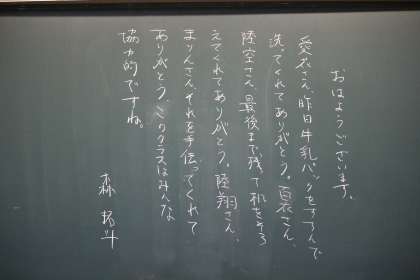 おはようございます。
愛衣さん、昨日牛乳パックをすすんで
洗ってくれてありがとう。百衣さん、
陸空さん、最後まで残って机をそろ
えてくれてありがとう。陸翔さん、
まりんさん、それを手伝ってくれて
ありがとう。このクラスはみんな
協力的ですね。
森 拓斗